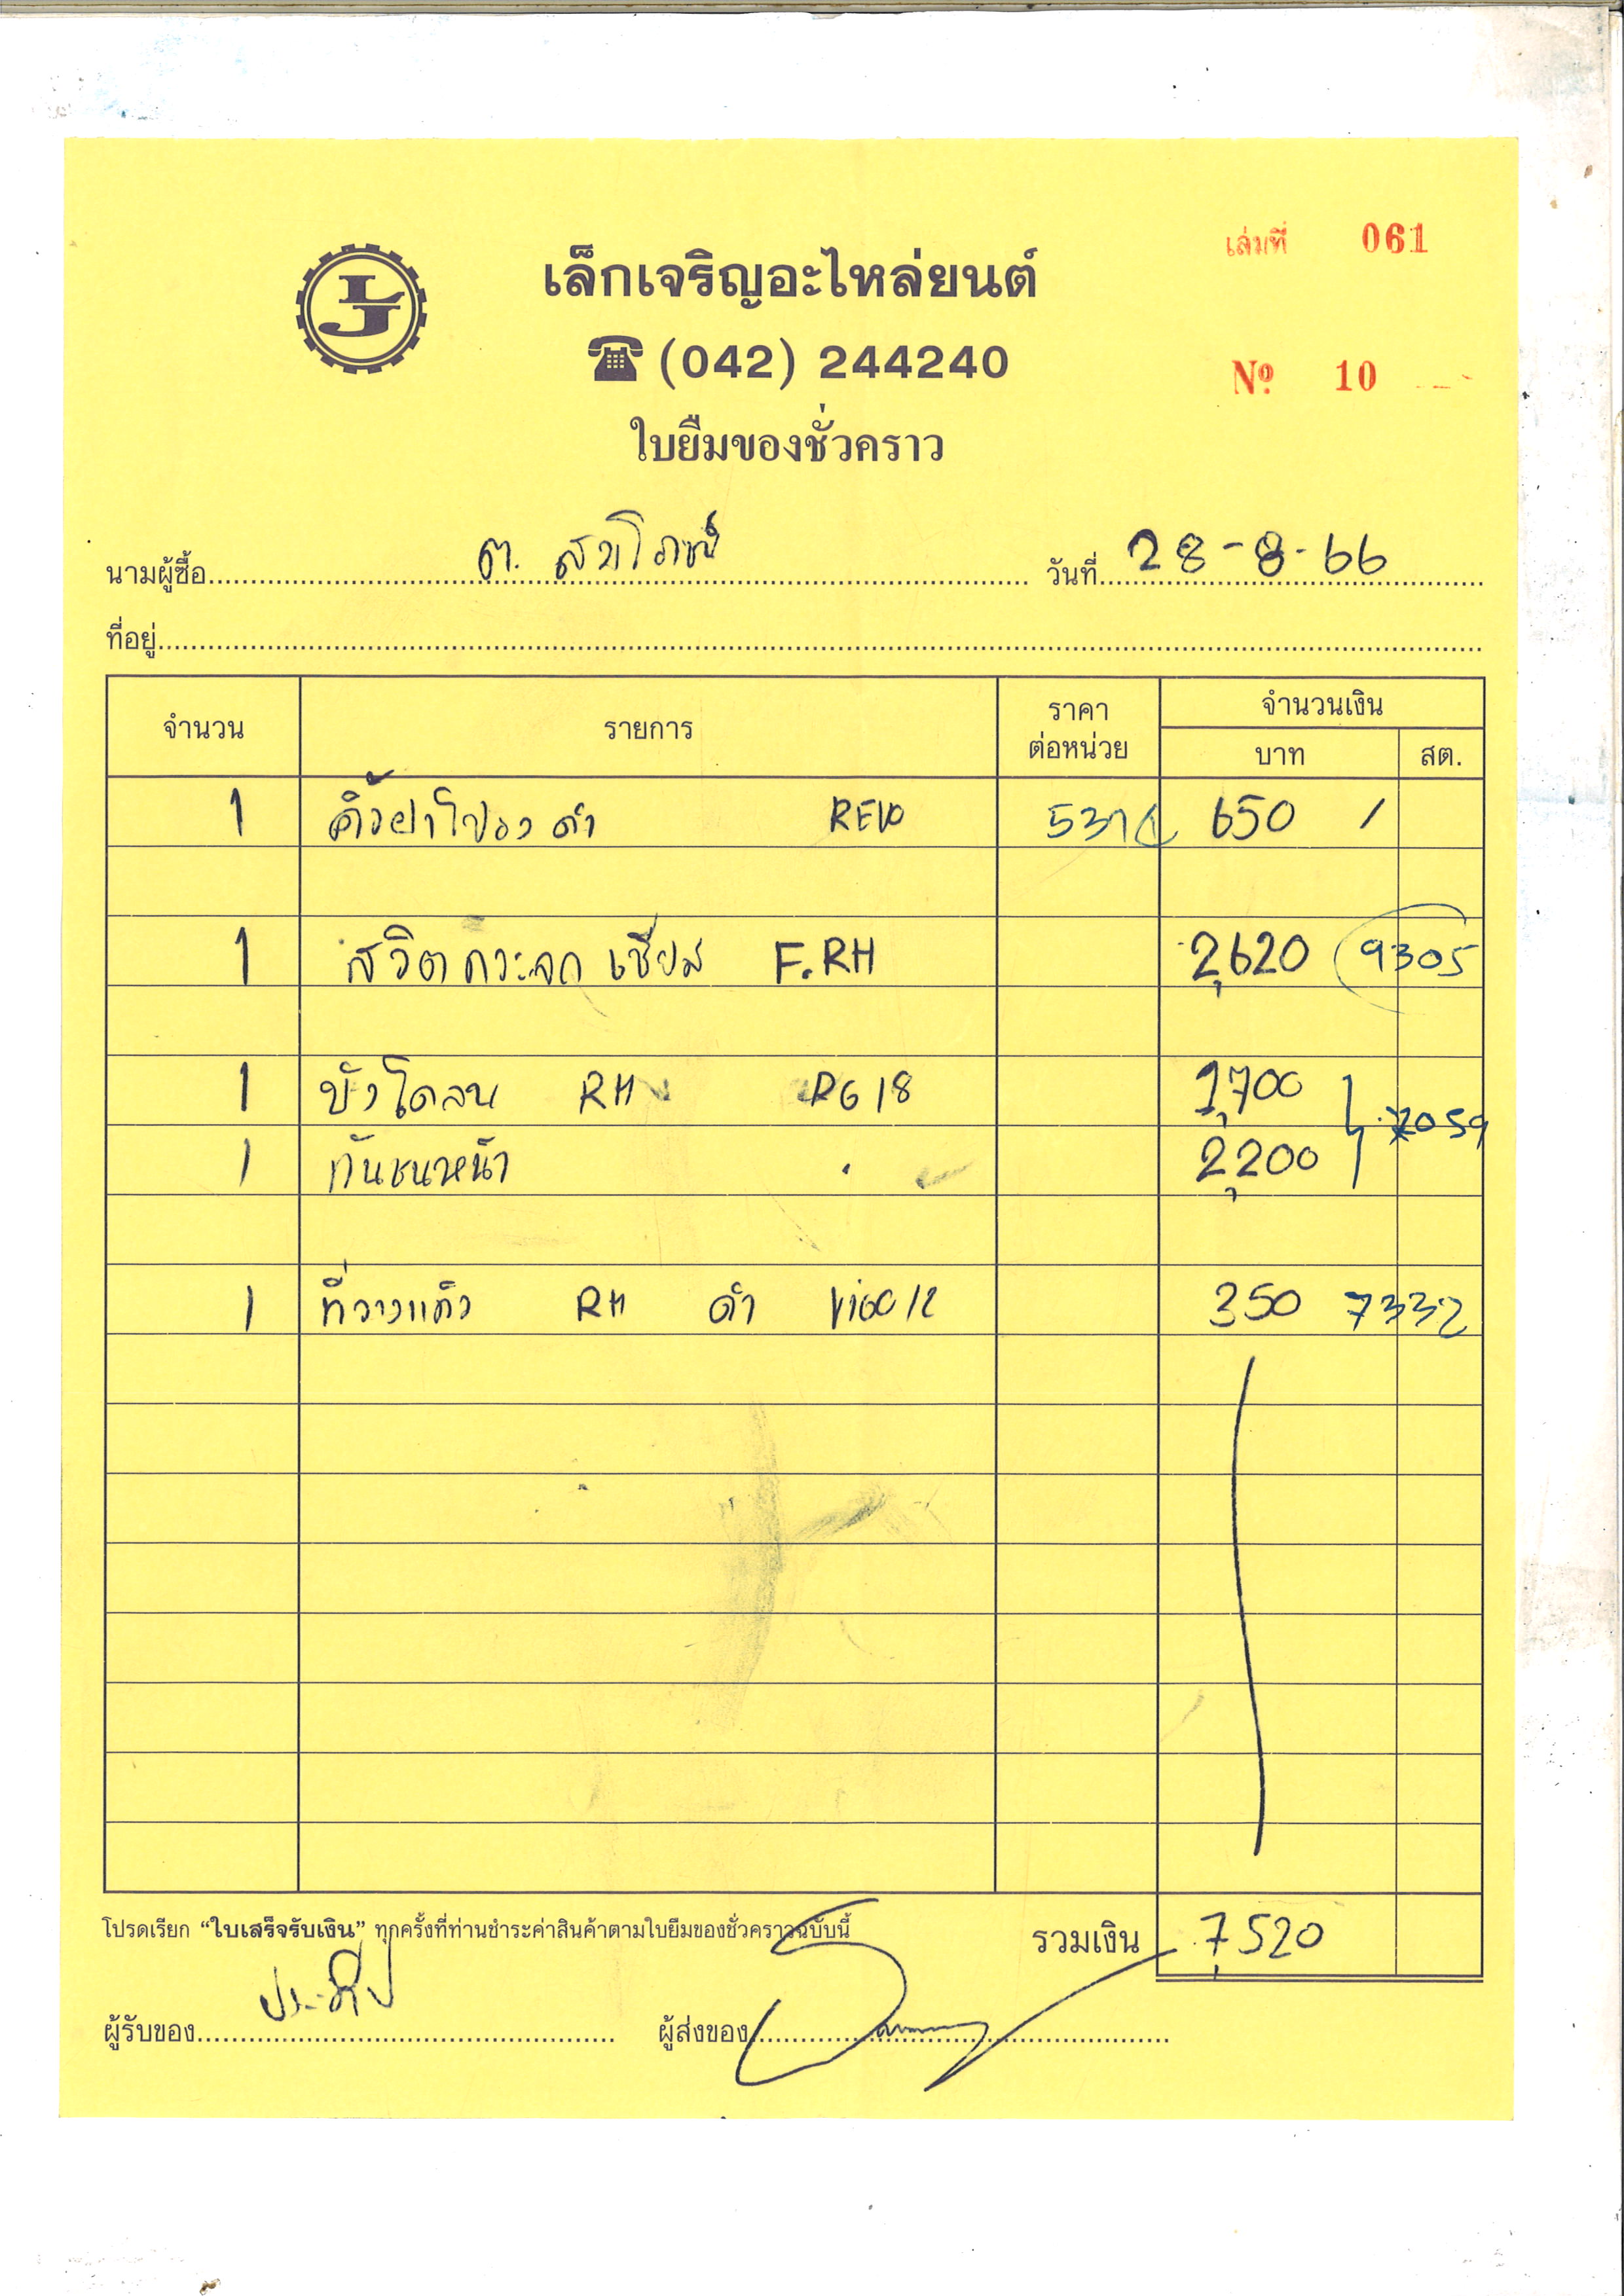 เล่มที่ 061
เล็กเจริญอะไหล่ยนต์
(042) 244240
Nº 10
ใบยืมของชั่วคราว
นามผู้ซื้อ ต. สมโภชน์ วันที่ 28-8-66
ที่อยู่
จำนวน รายการ ราคาต่อหน่วย จำนวนเงิน
บาท สต.
1 คิ้วฝาโปรง ดำ REVO 650
1 สวิตกระจก เซียม F.RH 2,620 9305
1 บังโคลน RH RG 18 1,700
7059
1 กันชนหน้า 2,200
1 ที่วางแก้ว RH ดำ VIGO 12 350 7332
โปรดเรียก "ใบเสร็จรับเงิน" ทุกครั้งที่ท่านชำระค่าสินค้าตามใบยืมของชั่วคราวฉบับนี้ รวมเงิน 7,520
ผู้รับของ ประทีป ผู้ส่งของ